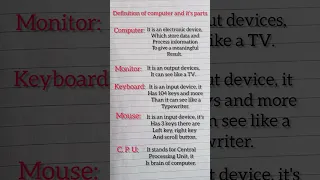 Definition of computer and it's parts
Computer: It is an electronic device,
Which store data and
Process information
To give a meaningful
Result.
Monitor: It is an output devices,
It can see like a TV.
Keyboard: It is an input device, it
Has 104 keys and more
Than it can see like a
Typewriter.
Mouse: It is an input device, it's
Has 3 keys there are
Left key, right key
And scroll button.
C. P. U: It stands for Central
Processing Unit, it
Is brain of computer.
Monitor:
Keyboard:
Mouse:
put devices,
e a TV.
t device, it
ys and more
see like a
riter.
device, it's
there are
right key
button.